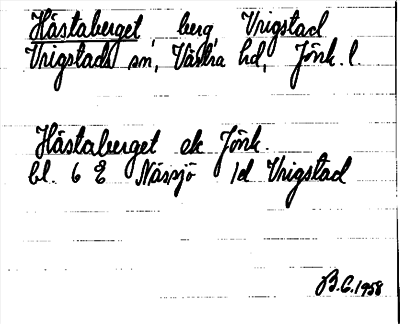 Hästaberget, berg, Vrigstad
Vrigstads sn, Västra hd, Jönk. l.
Hästaberget ek Jönk.
bl. 6 E Nässjö 1d Vrigstad
B.G. 1958